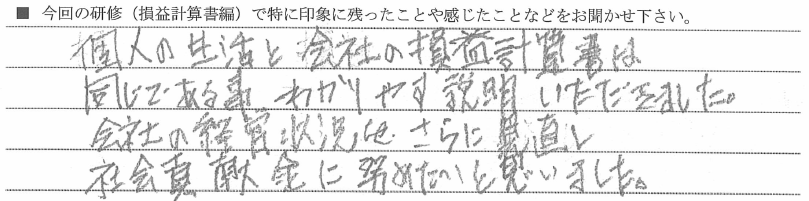 ■ 今回の研修（損益計算書編）で特に印象に残ったことや感じたことなどをお聞かせ下さい。
個人の生活と会社の損益計算書は
同じである事 わかりやす説明いただきました。
会社の経営状況をさらに見直し
社会貢献金に努めたいと思いました。